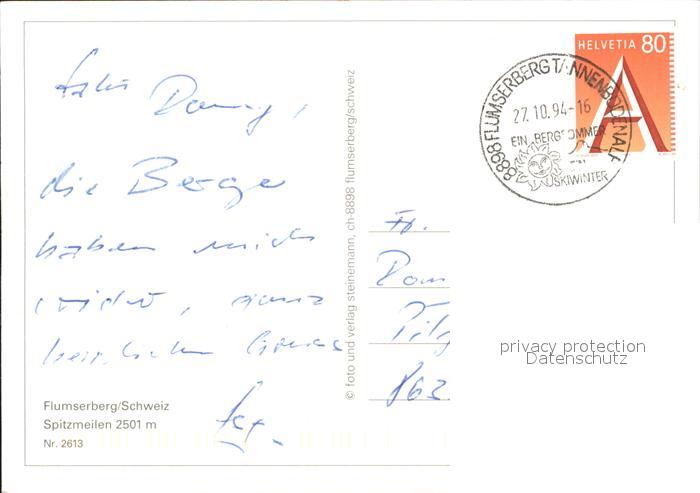 die Berge
haben mich
wieder, ganz
herzlichen Gruss
Flumserberg/Schweiz
Spitzmeilen 2501 m
Nr. 2613
© foto und verlag steinemann, ch-8898 flumserberg/schweiz
HELVETIA 80
A
8898 FLUMSERBERG TANNENBODENALP
27.10.94-16
EIN BERGSOMMER
SKIWINTER
Fr.
privacy protection
Datenschutz